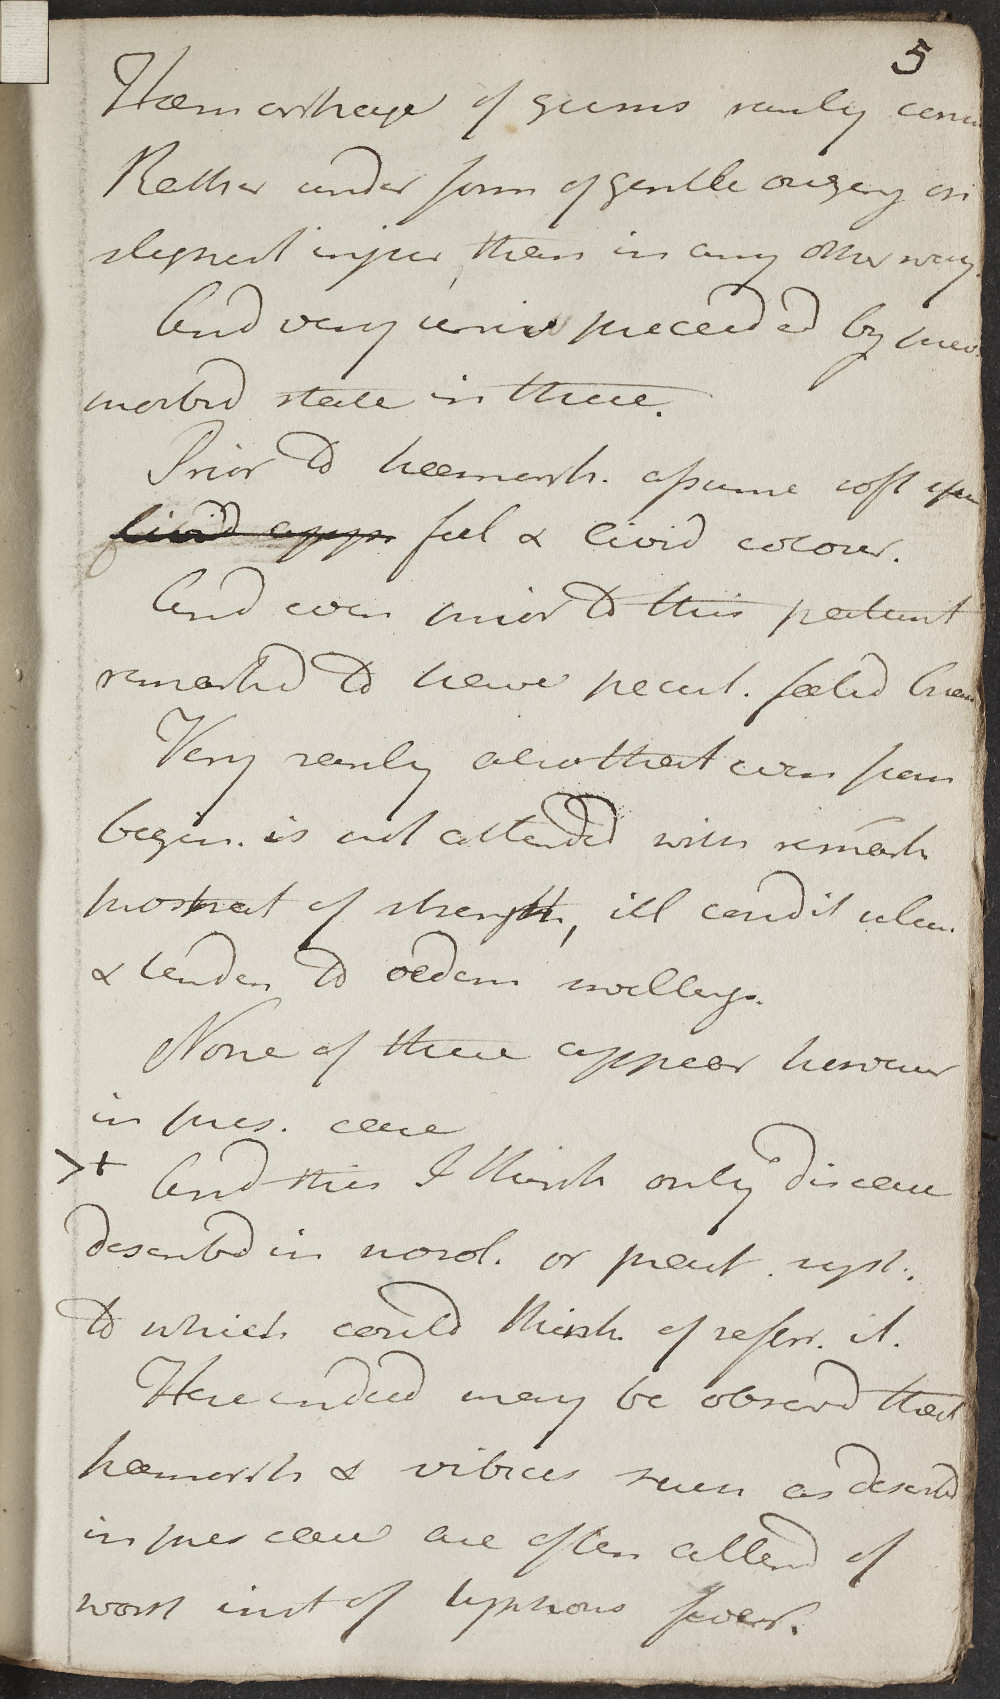 5
Hæmorrhage of gums rarely
Rather under form of gentle oozing on
slightest injur, than in any other way.
And very rarely preceeded by prev.
morbid state in these.
Prior to hæmorrh. assume soft spon
livid app. feel & livid colour.
And even prior to this patient
remarked to have pecul. foetid brea
Very rarely also that even from
begin. is not attended with remark
prostrat of strength, ill condit ulcer.
& tenden to oedem swellings.
None of these appear however
in pres. case
>+ And this I think only disease
described in nosol. or pract. syst.
to which could think of referr. it.
Here indeed may be observd that
hæmorrh & vibices such as describd
in pres case are often attend of
worst inst of typhous fever.